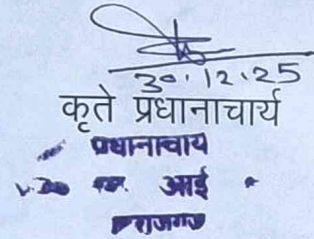 30.12.25
कृते प्रधानाचार्य
प्रधानाचाय
आई